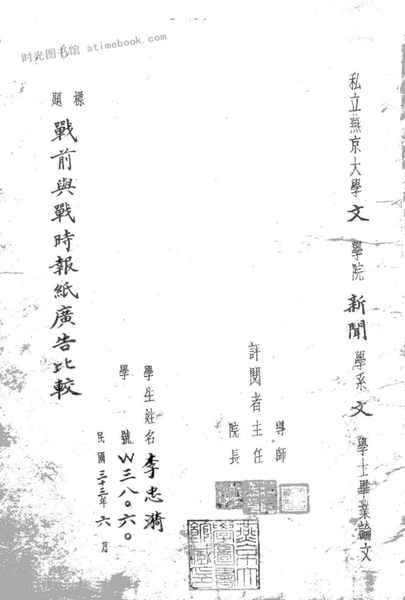 时光图书馆 atimebook.com
私立燕京大學文學院新聞學系文學士畢業論文
導師
評閱者主任
院長
學生姓名李忠漪
學號W三八〇六〇
民國三十三年六月
標題
戰前與戰時報紙廣告比較
燕京大學圖書館藏